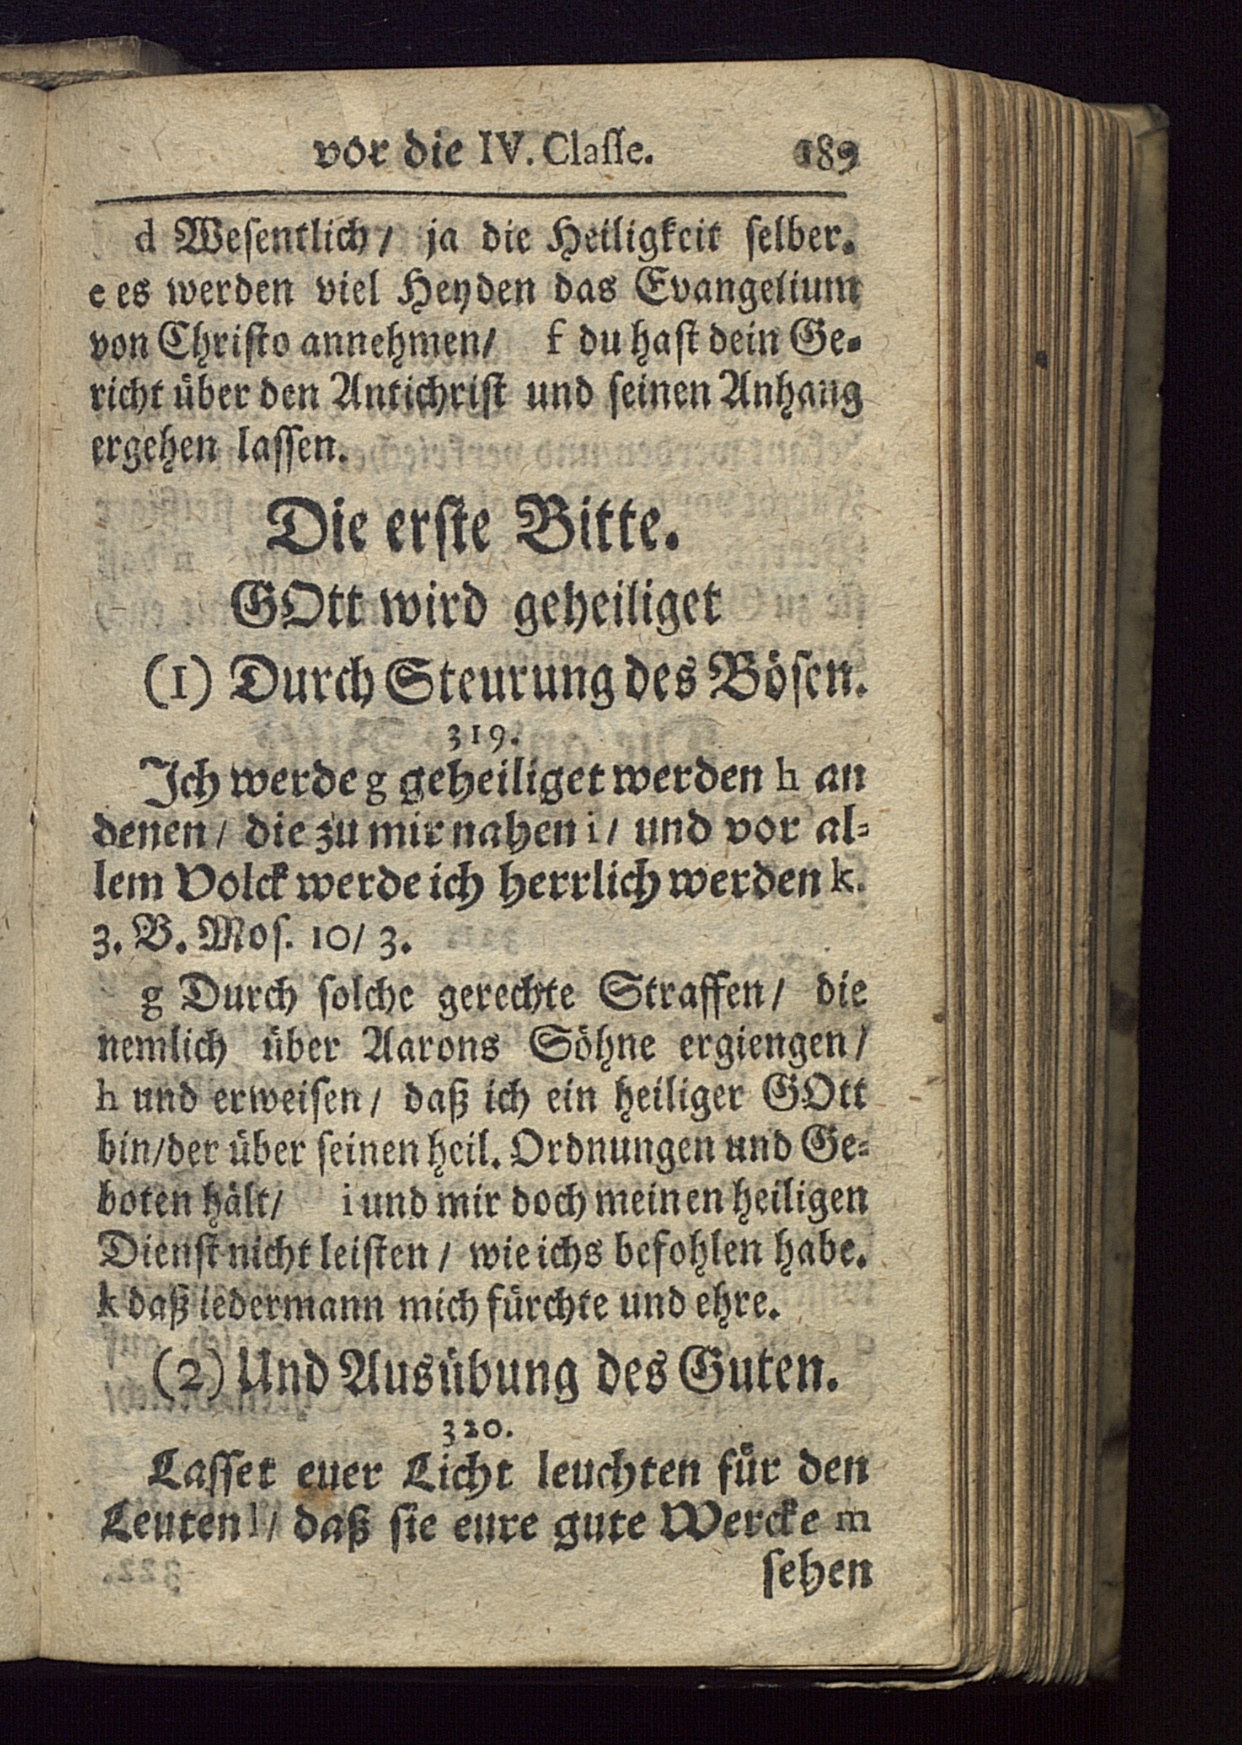 vor die IV. Classe. 189
d Wesentlich/ ja die Heiligkeit selber.
e es werden viel Heyden das Evangelium
von Christo annehmen/ f du hast dein Ge-
richt über den Antichrist und seinen Anhang
ergehen lassen.
Die erste Bitte.
GOtt wird geheiliget
(1) Durch Steurung des Bösen.
319.
Ich werde g geheiliget werden h an
denen/ die zu mir nahen i/ und vor al-
lem Volck werde ich herrlich werden k.
3. B. Mos. 10/ 3.
g Durch solche gerechte Straffen/ die
nemlich über Aarons Söhne ergiengen/
h und erweisen/ daß ich ein heiliger GOtt
bin/der über seinen heil. Ordnungen und Ge-
boten hält/ i und mir doch meinen heiligen
Dienst nicht leisten/ wie ichs befohlen habe.
k daß iedermann mich fürchte und ehre.
(2) Und Ausübung des Guten.
320.
Lasset euer Licht leuchten für den
Leuten l/ daß sie eure gute Wercke m
sehen